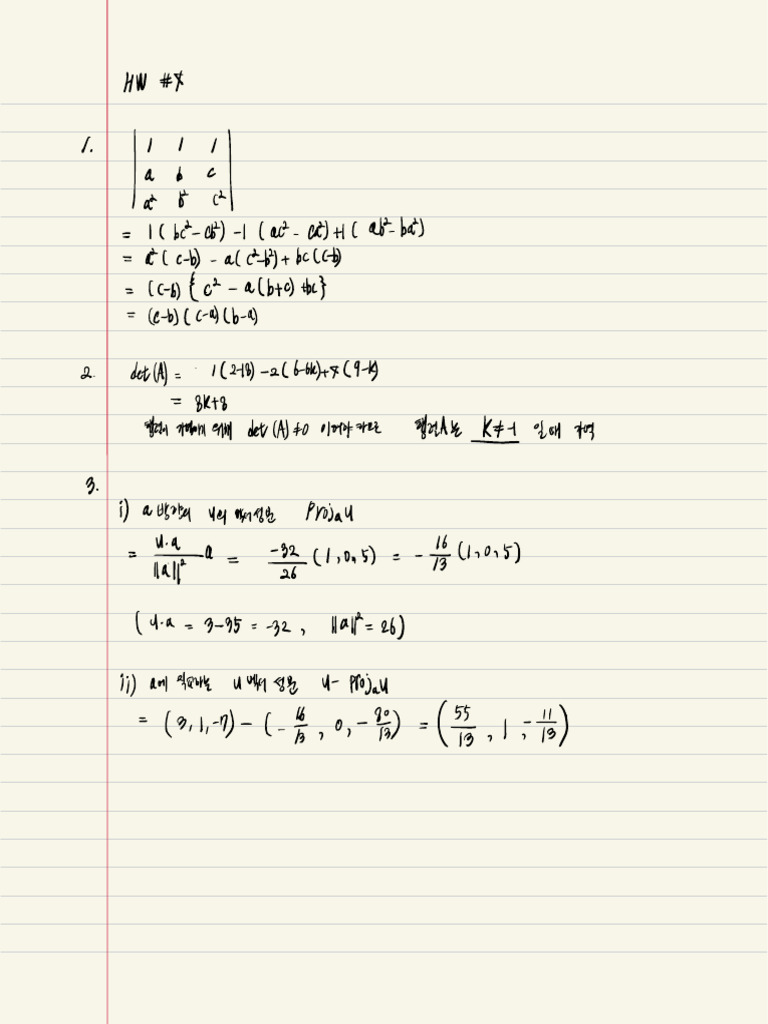 HW #7
1. | 1 1 1 |
| a b c |
| a² b² c² |
= 1(bc²-cb²) -1(ac²-ca²)+1(ab²-ba²)
= a²(c-b) - a(c²-b²) + bc(c-b)
= (c-b){c² - a(b+c) +bc}
= (c-b)(c-a)(b-a)
2. det(A) = 1(2-18) -2(6-6k)+4(9-k)
= 8k+8
det(A) ≠0 이어야 하므로 행렬A는 K≠-1 일때 가역
3.
i) a 방향의 u의 벡터성분 Proj_a u
= u·a / ||a||² a = -32/26 (1,0,5) = -16/13 (1,0,5)
(u·a = 3-35 = -32, ||a||² = 26)
ii) a에 직교하는 u 벡터 성분 u- proj_a u
= (3,1,-7) - (-16/13, 0, -80/13) = (55/13, 1, -11/13)